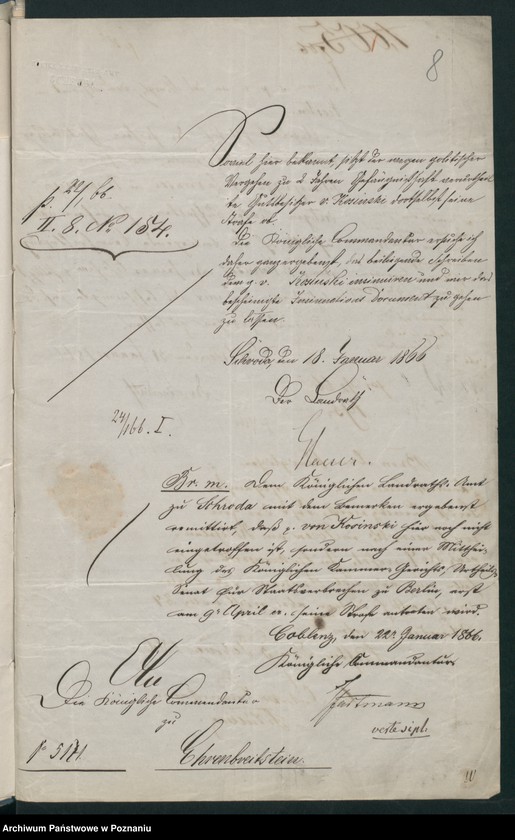 8
Soviel hier bekannt, sitzt der wegen politischer
Vergehen zu 2 Jahren Gefängnißhaft verurtheil
te Gutsbesitzer v. Kosinski dortselbst seine
Strafe ab.
Die Königliche Commandantur ersuche ich
daher ganz ergebenst, das beiliegende Schreiben
dem p. v. Kosinski insinuiren und mir das
bescheinigte Insinuations Document zugehen
zu lassen.
Schroda, den 18. Januar 1866
Der Landrath
p. 22/1 66.
II. 8. No 154.
24/1 66. I.
Br. m. Dem Königlichen Landraths-Amt
zu Schroda mit dem Bemerken ergebenst
remittirt, daß p. von Kosinski hier noch nicht
eingetroffen ist, sondern nach einer Mitthei-
lung des Königlichen Kammer-Gerichts, Urtheils-
Senat für Staatsverbrechen zu Berlin, erst
am 9. April cr. seine Strafe antreten wird.
Coblenz, den 22. Januar 1866.
Königliche Commandantur
An
Die Königliche Commandantur
zu
Ehrenbreitstein.
Archiwum Państwowe w Poznaniu